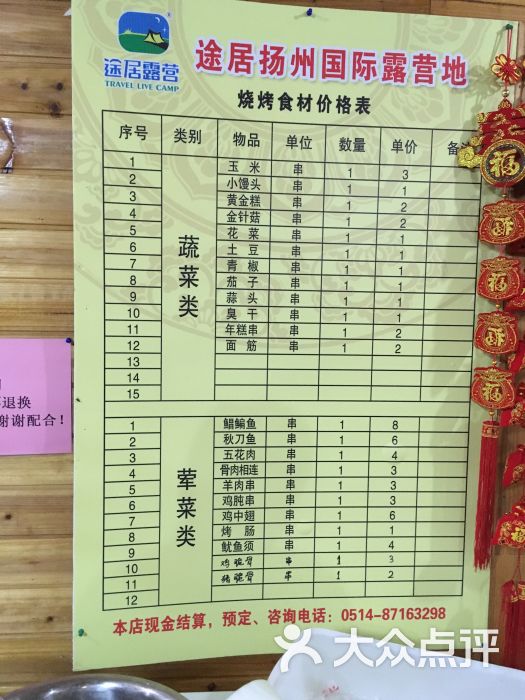 途居露营
TRAVEL LIVE CAMP
途居扬州国际露营地
烧烤食材价格表
序号 类别 物品 单位 数量 单价 备
蔬菜类
1 玉米 串 1 3
2 小馒头 串 1 1
3 黄金糕 串 1 2
4 金针菇 串 1 2
5 花菜 串 1 1
6 土豆 串 1 1
7 青椒 串 1 1
8 茄子 串 1 1
9 蒜头 串 1 1
10 臭干 串 1 1
11 年糕串 串 1 2
12 面筋 串 1 2
13
14
15
荤菜类
1 鲳鳊鱼 串 1 8
2 秋刀鱼 串 1 6
3 五花肉 串 1 4
4 骨肉相连 串 1 3
5 羊肉串 串 1 3
6 鸡肫串 串 1 3
7 鸡中翅 串 1 6
8 烤肠 串 1 1
9 鱿鱼须 串 1 4
10 鸡脆骨 串 1 3
11 猪脆骨 串 1 2
12
本店现金结算，预定、咨询电话：0514-87163298
退换
谢谢配合！
福
福
福
福
大众点评